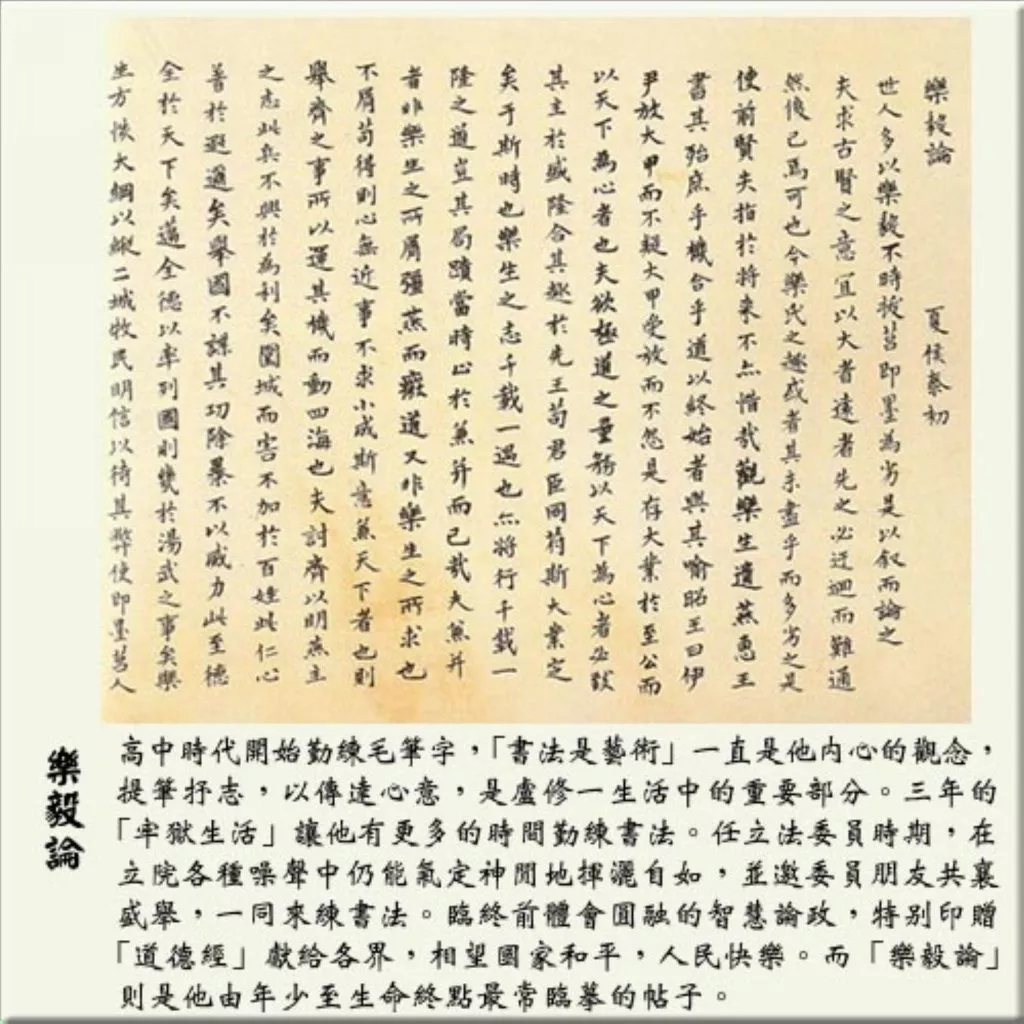 樂毅論　夏侯泰初
世人多以樂毅不時拔莒即墨為劣是以叙而論之
夫求古賢之意宜以大者遠者先之必迂迴而難通
然後已焉可也今樂氏之趣或者其未盡乎而多劣之是
使前賢失指於将來不亦惜哉觀樂生遺燕惠王
書其殆庶乎機合乎道以終始者與其喻昭王曰伊
尹放大甲而不疑大甲受放而不怨是存大業於至公而
以天下為心者也夫欲極道之量務以天下為心者必致
其主於盛隆合其趣於先王苟君臣同符斯大業定
矣于斯時也樂生之志千載一遇也亦将行千載一
隆之道豈其局蹟當時止於兼并而已哉夫兼并
者非樂生之所屑彊燕而癈道又非樂生之所求也
不屑苟得則心無近事不求小成斯意兼天下者也則
舉齊之事所以運其機而動四海也夫討齊以明燕主
之志此兵不興於為利矣圍城而害不加於百姓此仁心
著於遐邇矣舉國不謀其功除暴不以威力此至德
全於天下矣邁全德以率列國則幾於湯武之事矣樂
生方恢大綱以縱二城牧民明信以待其弊使即墨莒人
樂毅論
高中時代開始勤練毛筆字，「書法是藝術」一直是他內心的觀念，
提筆抒志，以傳達心意，是盧修一生活中的重要部分。三年的
「牢獄生活」讓他有更多的時間勤練書法。任立法委員時期，在
立院各種噪聲中仍能氣定神閒地揮灑自如，並邀委員朋友共襄
盛舉，一同來練書法。臨終前體會圓融的智慧論政，特別印贈
「道德經」獻給各界，相望國家和平，人民快樂。而「樂毅論」
則是他由年少至生命終點最常臨摹的帖子。